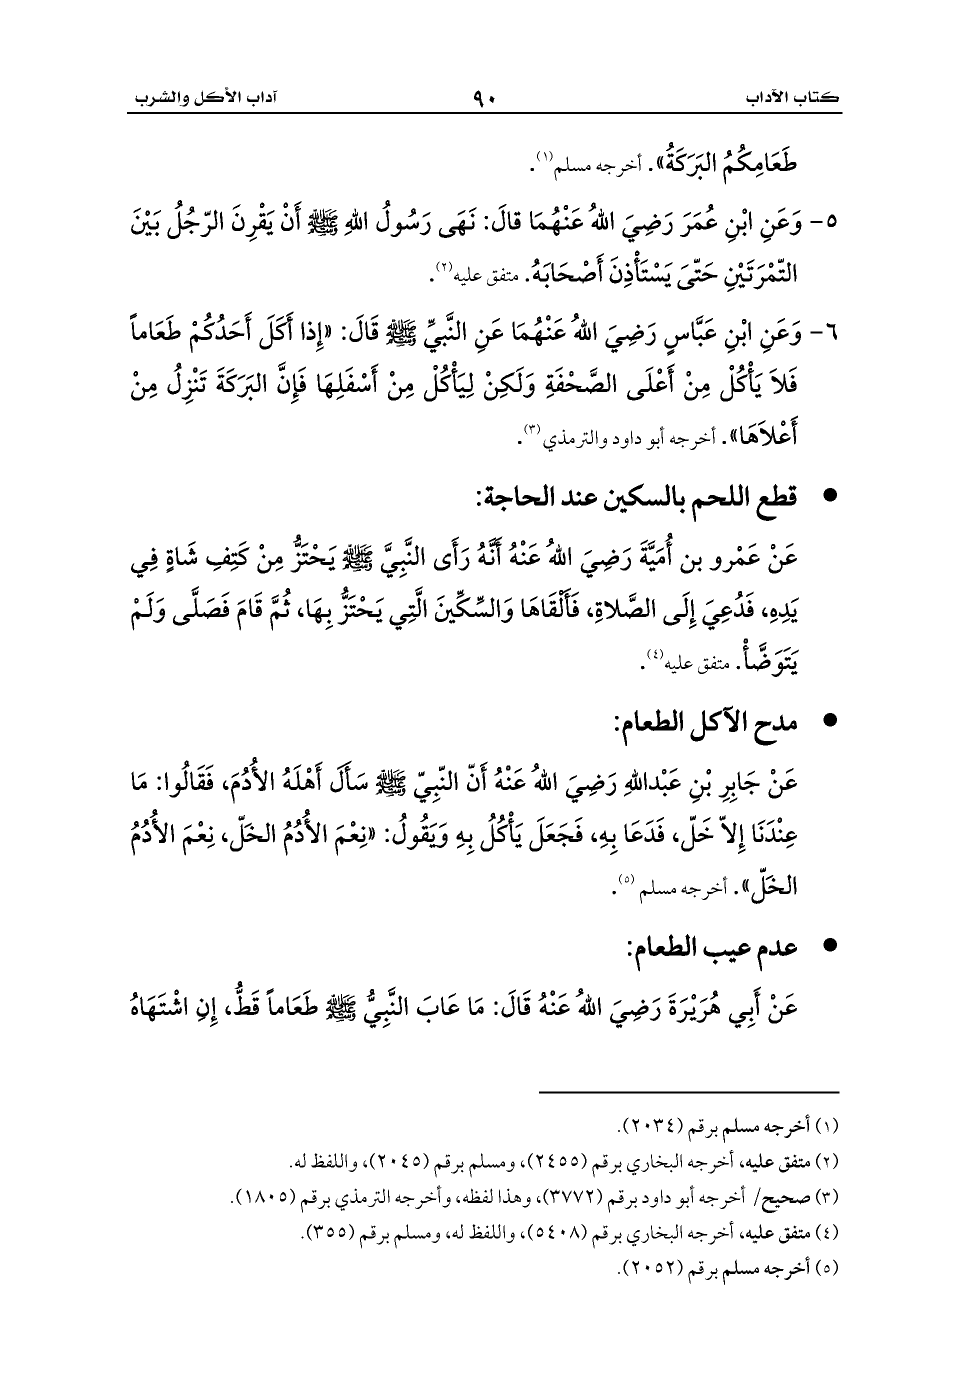 كتاب الآداب ٩٠ آداب الأكل والشرب
طَعَامِكُمُ البَرَكَةُ». أخرجه مسلم(١).
٥- وَعَنِ ابْنِ عُمَرَ رَضِيَ اللهُ عَنْهُمَا قالَ: نَهَى رَسُولُ اللهِ ﷺ أَنْ يَقْرِنَ الرّجُلُ بَيْنَ
التّمْرَتَيْنِ حَتّىَ يَسْتَأْذِنَ أَصْحَابَهُ. متفق عليه(٢).
٦- وَعَنِ ابْنِ عَبَّاسٍ رَضِيَ اللهُ عَنْهُمَا عَنِ النَّبِيِّ ﷺ قَالَ: «إِذا أَكَلَ أَحَدُكُمْ طَعَاماً
فَلاَ يَأْكُلْ مِنْ أَعْلَى الصَّحْفَةِ وَلَكِنْ لِيَأْكُلْ مِنْ أَسْفَلِهَا فَإِنَّ البَرَكَةَ تَنْزِلُ مِنْ
أَعْلاَهَا». أخرجه أبو داود والترمذي(٣).
● قطع اللحم بالسكين عند الحاجة:
عَنْ عَمْرو بن أُمَيَّةَ رَضِيَ اللهُ عَنْهُ أَنَّهُ رَأَى النَّبِيَّ ﷺ يَحْتَزُّ مِنْ كَتِفِ شَاةٍ فِي
يَدِهِ، فَدُعِيَ إِلَى الصَّلاةِ، فَأَلْقَاهَا وَالسِّكِّينَ الَّتِي يَحْتَزُّ بِهَا، ثُمَّ قَامَ فَصَلَّى وَلَمْ
يَتَوَضَّأْ. متفق عليه(٤).
● مدح الآكل الطعام:
عَنْ جَابِرِ بْنِ عَبْداللهِ رَضِيَ اللهُ عَنْهُ أَنّ النّبِيّ ﷺ سَأَلَ أَهْلَهُ الأُدُمَ، فَقَالُوا: مَا
عِنْدَنَا إِلاّ خَلّ، فَدَعَا بِهِ، فَجَعَلَ يَأْكُلُ بِهِ وَيَقُولُ: «نِعْمَ الأُدُمُ الخَلّ، نِعْمَ الأُدُمُ
الخَلّ». أخرجه مسلم (٥).
● عدم عيب الطعام:
عَنْ أَبِي هُرَيْرَةَ رَضِيَ اللهُ عَنْهُ قَالَ: مَا عَابَ النَّبِيُّ ﷺ طَعَاماً قَطُّ، إِنِ اشْتَهَاهُ
(١) أخرجه مسلم برقم (٢٠٣٤).
(٢) متفق عليه، أخرجه البخاري برقم (٢٤٥٥)، ومسلم برقم (٢٠٤٥)، واللفظ له.
(٣) صحيح/ أخرجه أبو داود برقم (٣٧٧٢)، وهذا لفظه، وأخرجه الترمذي برقم (١٨٠٥).
(٤) متفق عليه، أخرجه البخاري برقم (٥٤٠٨)، واللفظ له، ومسلم برقم (٣٥٥).
(٥) أخرجه مسلم برقم (٢٠٥٢).